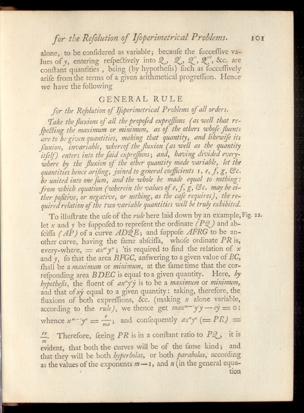 for the Resolution of Isoperimetrical Problems. 101
alone, to be considered as variable; because the successive va-
lues of y, entering respectively into Q, Q', Q'', Q''', &c. are
constant quantities, being (by hypothesis) such as successively
arise from the terms of a given arithmetical progression. Hence
we have the following
GENERAL RULE
for the Resolution of Isoperimetrical Problems of all orders.
Take the fluxions of all the proposed expressions (as well that re-
specting the maximum or minimum, as of the others whose fluents
are to be given quantities, making that quantity, and likewise its
fluxion, invariable, whereof the fluxion (as well as the quantity
itself) enters into the said expressions; and, having divided every-
where by the fluxion of the other quantity made variable, let the
quantities hence arising, joined to general coefficients 1, e, f, g, &c.
be united into one sum, and the whole be made equal to nothing:
from which equation (wherein the values of e, f, g, &c. may be ei-
ther positive, or negative, or nothing, as the case requires), the re-
quired relation of the two variable quantities will be truly exhibited.
To illustrate the use of the rule here laid down by an example, Fig. 22.
let x and y be supposed to represent the ordinate (PQ) and ab-
scissa (AP) of a curve ADQE; and suppose AFRG to be an-
other curve, having the same abscissa, whose ordinate PR is,
every-where, = axᵐyⁿ; 'tis required to find the relation of x
and y, so that the area BFGC, answering to a given value of BC,
shall be a maximum or minimum, at the same time that the cor-
responding area BDEC is equal to a given quantity. Here, by
hypothesis, the fluent of axᵐyⁿẏ is to be a maximum or minimum,
and that of xẏ equal to a given quantity: taking, therefore, the
fluxions of both expressions, &c. (making x alone variable,
according to the rule), we thence get
whence and consequently axᵐyⁿ (= PR) =
Therefore, seeing PR is in a constant ratio to PQ, it is
evident, that both the curves will be of the same kind; and
that they will be both hyperbolas, or both parabolas, according
as the values of the exponents m — 1, and n (in the general equa-
tion